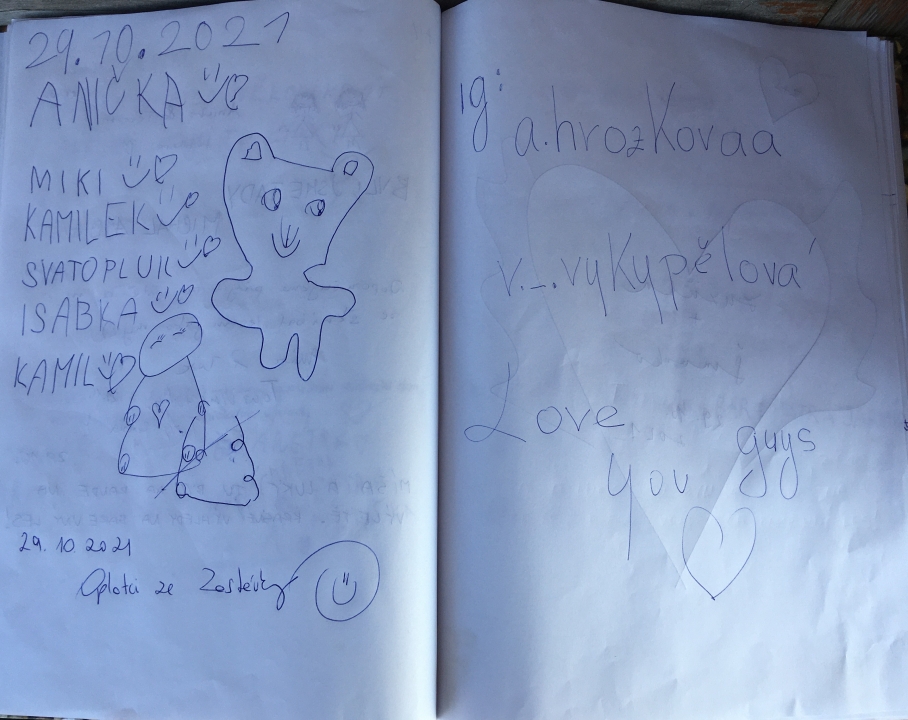 29.10.2021
ANIČKA
MIKI
KAMILEK
SVATOPLUK
ISABKA
KAMIL
29. 10 2021
ze Zastávky
ig:
a.hrozkovaa
v._.vykypělová
Love
you guys